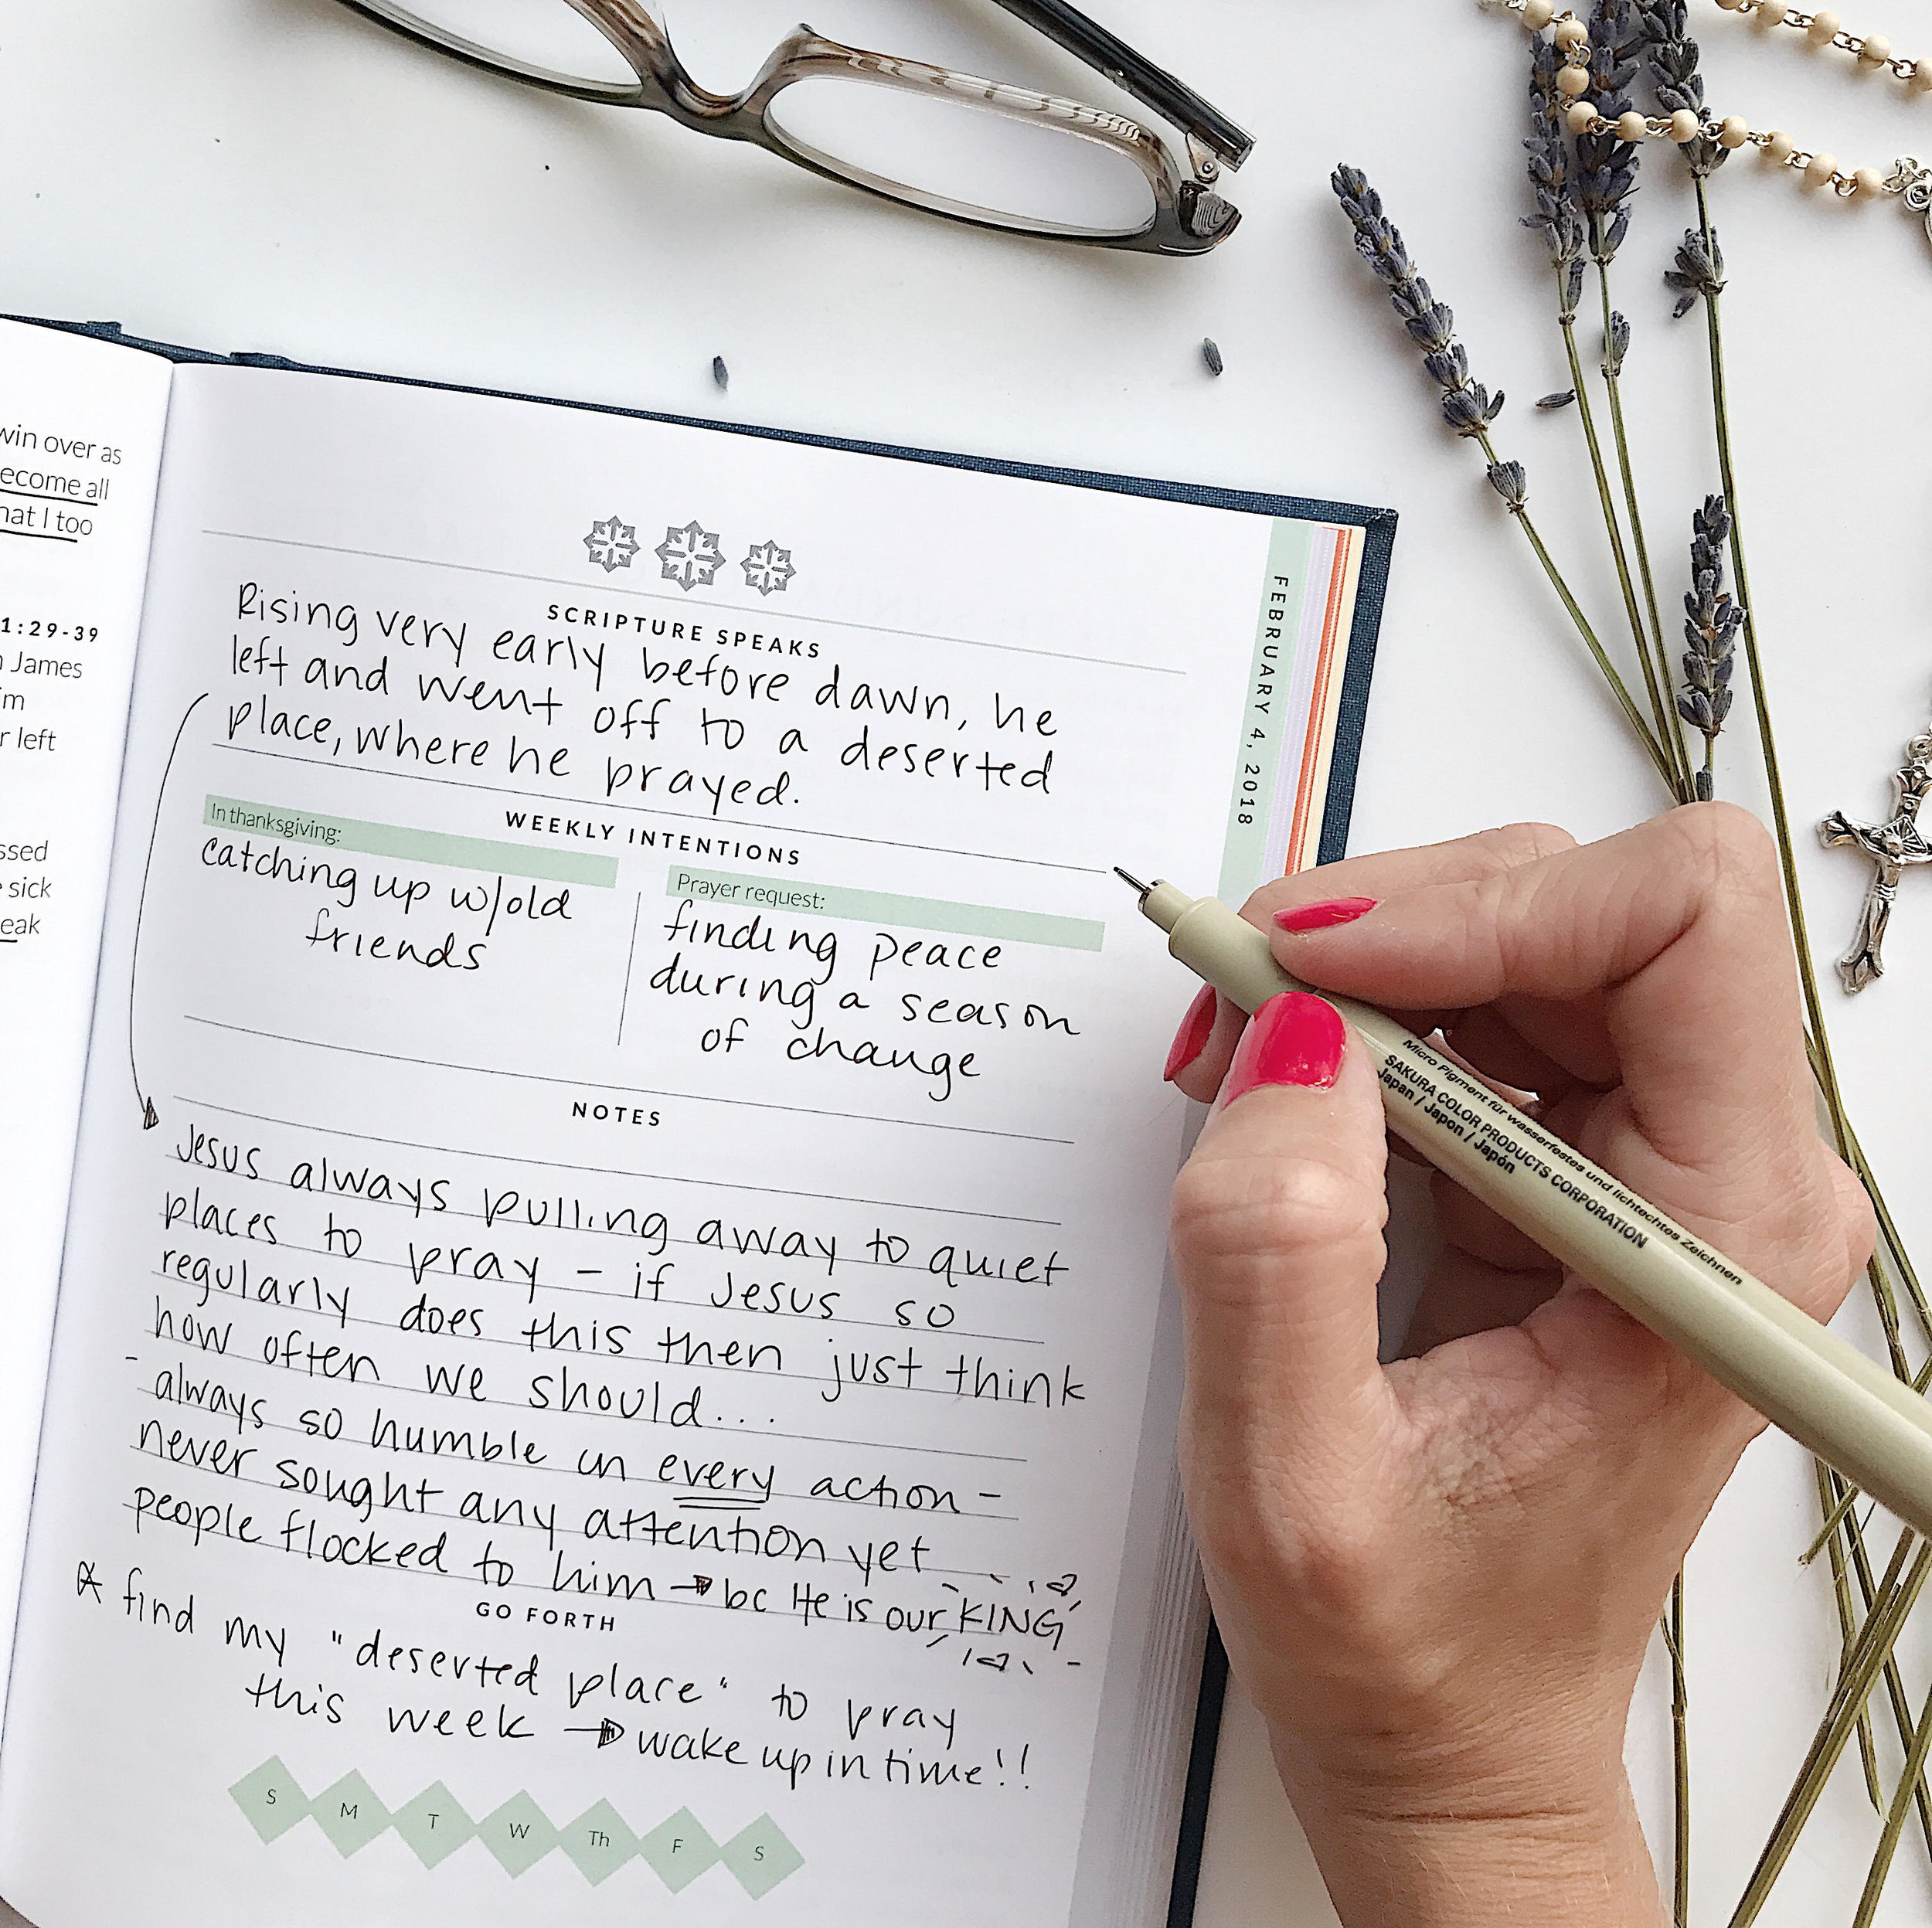 win over as
ecome all
hat I too
1:29-39
James
im
r left
ssed
sick
eak
SCRIPTURE SPEAKS
Rising very early before dawn, he
left and went off to a deserted
place, where he prayed.
WEEKLY INTENTIONS
In thanksgiving:
catching up w/old
friends
Prayer request:
finding peace
during a season
of change
NOTES
Jesus always pulling away to quiet
places to pray - if Jesus so
regularly does this then just think
how often we should...
- always so humble in every action -
never sought any attention yet
people flocked to him → bc He is our KING
GO FORTH
find my "deserted place" to pray
this week → wake up in time!!
S M T W Th F S
FEBRUARY 4, 2018
Micro Pigment für wasserfestes und lichtechtes Zeichnen
SAKURA COLOR PRODUCTS CORPORATION
Japan / Japon / Japón